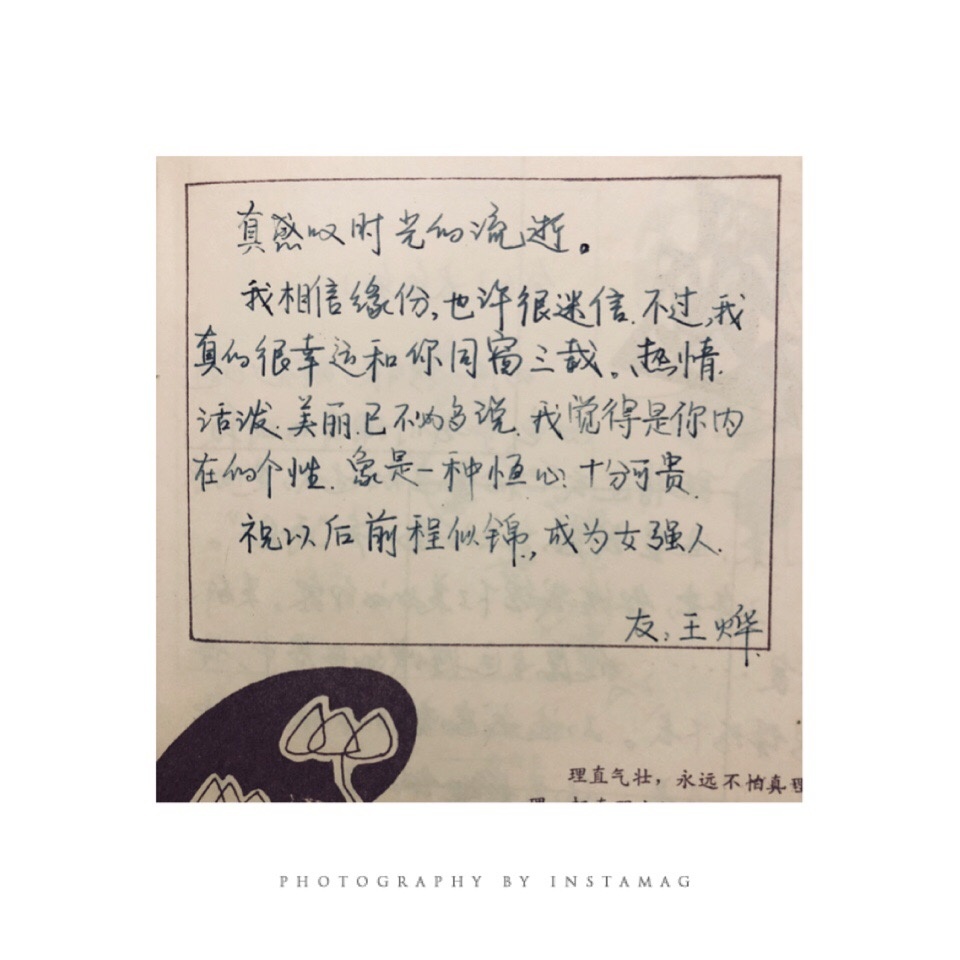 真感叹时光的流逝。
我相信缘份,也许很迷信.不过,我
真的很幸运和你同窗三载。热情.
活泼.美丽.已不必多说.我觉得是你内
在的个性.象是一种恒心.十分可贵.
祝以后前程似锦,成为女强人.
友:王烨.
理直气壮,永远不怕真理
PHOTOGRAPHY BY INSTAMAG